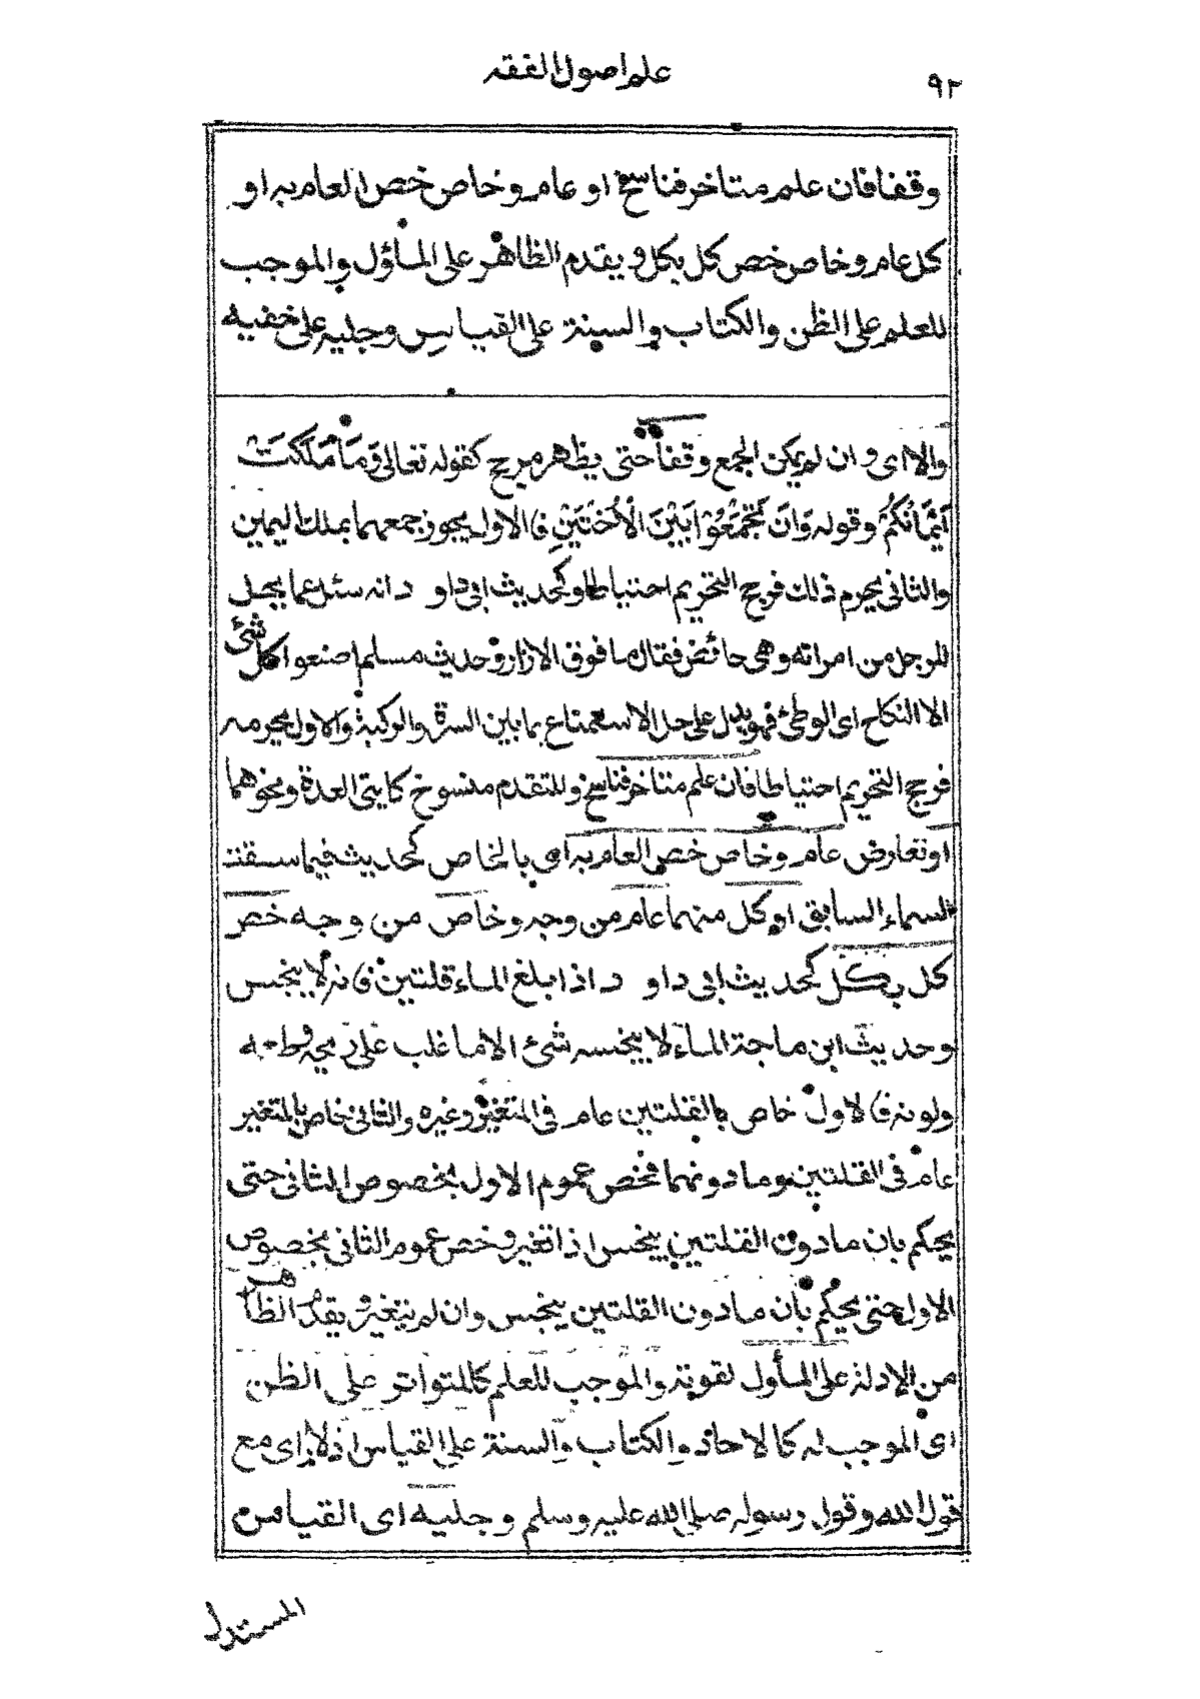 علم اصول الفقه
٩٢
وقفا فان علم متاخر فناسخ او عام وخاص خص العام به او
كل عام وخاص خص كل بكل ويقدم الظاهر على المأؤل والموجب
للعلم على الظن والكتاب والسنة على القياس وجليه على خفيه
والا اى وان لم يمكن الجمع وقفا حتى يظهر مرجح كقوله تعالى وَمَا مَلَكَتْ
اَيْمَانُكُمْ وقوله وَاَنْ تَجْمَعُوْا بَيْنَ الْاُخْتَيْنِ فالاول يجوز جمعهما بملك اليمين
والثانى يحرم ذلك فرجح التحريم احتياطا وكحديث ابى داو د انه سئل عما يحل
للرجل من امراته وهى حائض فقال ما فوق الازار وحديث مسلم اصنعوا كل شئ
الا النكاح اى الوطئ فهو يدل على حل الاستمتاع بما بين السرة والركبة والاول يحرمه
فرجح التحريم احتياطا فان علم متاخر فناسخ وللتقدم منسوخ كايتى العدة ونحوهما
او تعارض عام وخاص خص العام به اى بالخاص كحديث فيما سقت
السماء السابق او كل منهما عام من وجه وخاص من وجه خص
كل بكل كحديث ابى داو د اذا بلغ الماء قلتين فانه لا ينجس
وحديث ابن ماجة الماء لا ينجسه شئ الا ما غلب على ريحه وطعمه
ولونه فالاول خاص بالقلتين عام فى المتغير وغيره والثانى خاص بالمتغير
عام فى القلتين وما دونهما فخص عموم الاول بخصوص الثانى حتى
يحكم بان ما دون القلتين ينجس اذا تغير وخص عموم الثانى بخصوص
الاول حتى يحكم بأن ما دون القلتين ينجس وان لم يتغير ويقدم الظاهر
من الادلة على المأول لقوته والموجب للعلم كالمتواتر على الظن
اى الموجب له كالاحاد والكتاب والسنة على القياس اذ لا راى مع
قول الله وقول رسوله صلى الله عليه وسلم وجليه اى القياس
المستدل